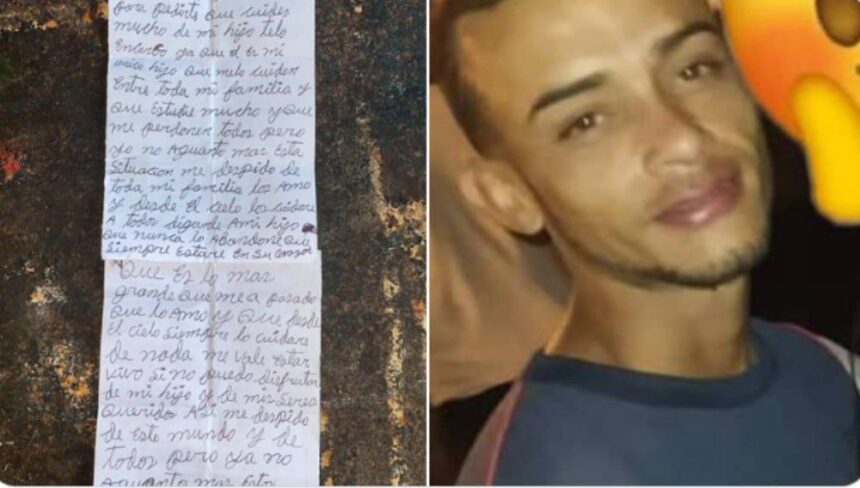 para pedirte que cuides
mucho de mi hijo telo
Encargo ya que el Es mi
unico hijo que melo cuiden
Entre toda mi familia y
que Estudie mucho y que
me perdonen todos pero
yo no Aguanto mas Esta
Situacion me despido de
toda mi familia los Amo
y desde El cielo los cuidare
A todos digande Ami hijo
que nunca lo Abandone que
Siempre Estare En su corazon
Que Es lo mas
grande que me a pasado
que lo Amo y que desde
El cielo Siempre lo cuidare
de nada me vale Estar
vivo Si no puedo disfrutar
de mi hijo y de mis Seres
queridos Asi me despido
de Este mundo y de
todos pero ya no
Aguanto mas Esto